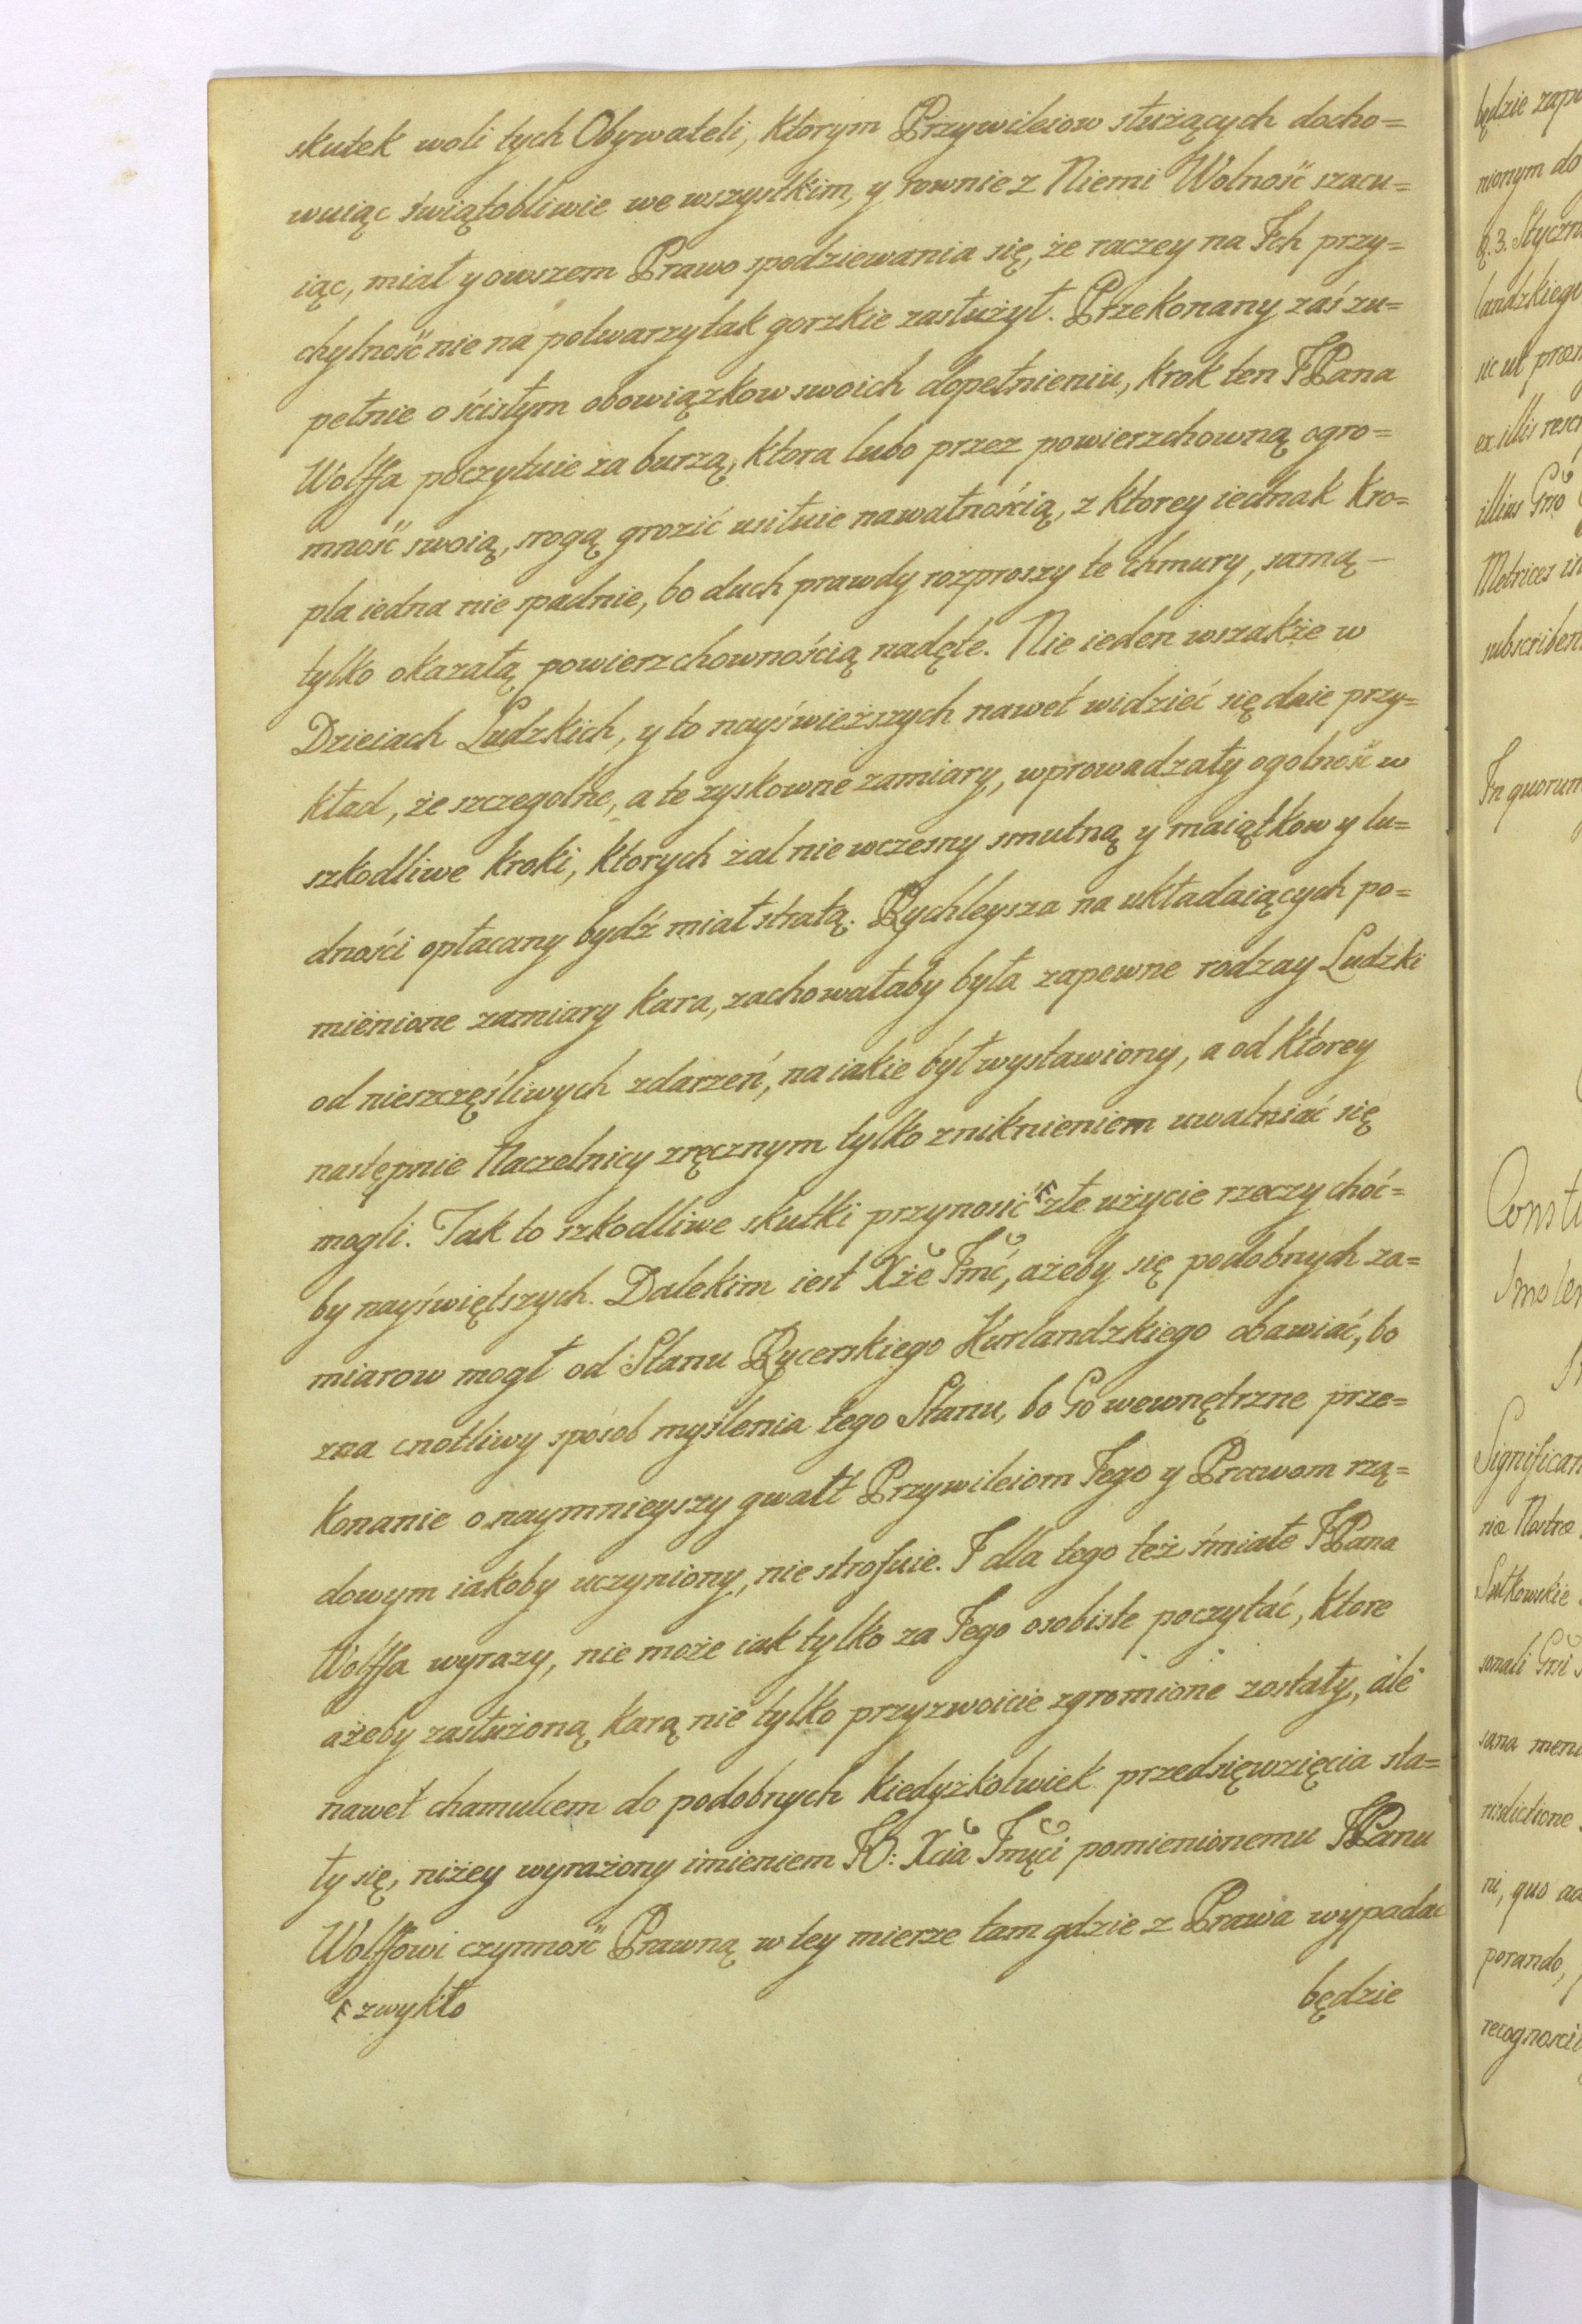 skutek woli tych Obywateli, ktorym Przywileiow służących docho=
wuiąc świątobliwie we wszystkim, y rownie z Niemi Wolność szacu=
iąc, miał y owszem Prawo spodziewania się, że raczey na Ich przy=
chylność nie na potwarzy tak gorzkie zasłużył. Przekonany zaś zu=
pełnie o ścisłym obowiązkow swoich dopełnieniu, krok ten JPana
Wolffa poczytuie za burzą, ktora lubo przez powierzchowną ogro=
mność swoią, srogą grozić usiłuie nawałnością, z ktorey iednak kro=
pla iedna nie spadnie, bo duch prawdy rozproszy te chmury, samą –
tylko okazałą powierzchownością nadęte. Nie ieden wszakże w
Dzieiach Ludzkich, y to nayświeższych nawet widzieć się daie przy=
kład, że szczegolne, a te zyskowne zamiary, wprowadzały ogolność w
szkodliwe kroki, ktorych żal nie wczesny smutną y maiątkow y lu=
dności opłacany bydź miał stratą. Rychleysza na układaiących po=
mienione zamiary kara, zachowałaby była zapewne rodzay Ludzki
od nieszczęśliwych zdarzeń, na iakie był wystawiony, a od ktorey
następnie Naczelnicy zręcznym tylko zniknieniem uwalniać się
mogli. Tak to szkodliwe skutki przynosić złe użycie rzeczy choć=
by nayświętszych. Dalekim iest Xże Jmć, ażeby się podobnych za=
miarow mogł od Stanu Rycerskiego Kurlandzkiego obawiać, bo
zna cnotliwy sposob myślenia tego Stanu, bo Go wewnętrzne prze=
konanie o naymnieyszy gwałt Przywileiom Jego y Prawom rzą=
dowym iakoby uczyniony, nie strofuie. I dla tego też śmiałe JPana
Wolffa wyrazy, nie może iak tylko za Jego osobiste poczytać, ktore
ażeby zasłużoną karą nie tylko przyzwoicie zgromione zostały, ale
nawet chamulcem do podobnych kiedyżkolwiek przedsięwzięcia sta=
ły się, niżey wyrażony imieniem JO: Xcia Jmęci pomienionemu JPanu
Wolffowi czynność Prawną w tey mierze tam gdzie z Prawa wypadać
zwykło
będzie
będzie
nionym do
landzkiego
sic ut
ex illis
illius Gno
Metrices in
In quorum
Significan
Nostræ
Sułkowskie
sonali Gni
sana
quo ad
porando,